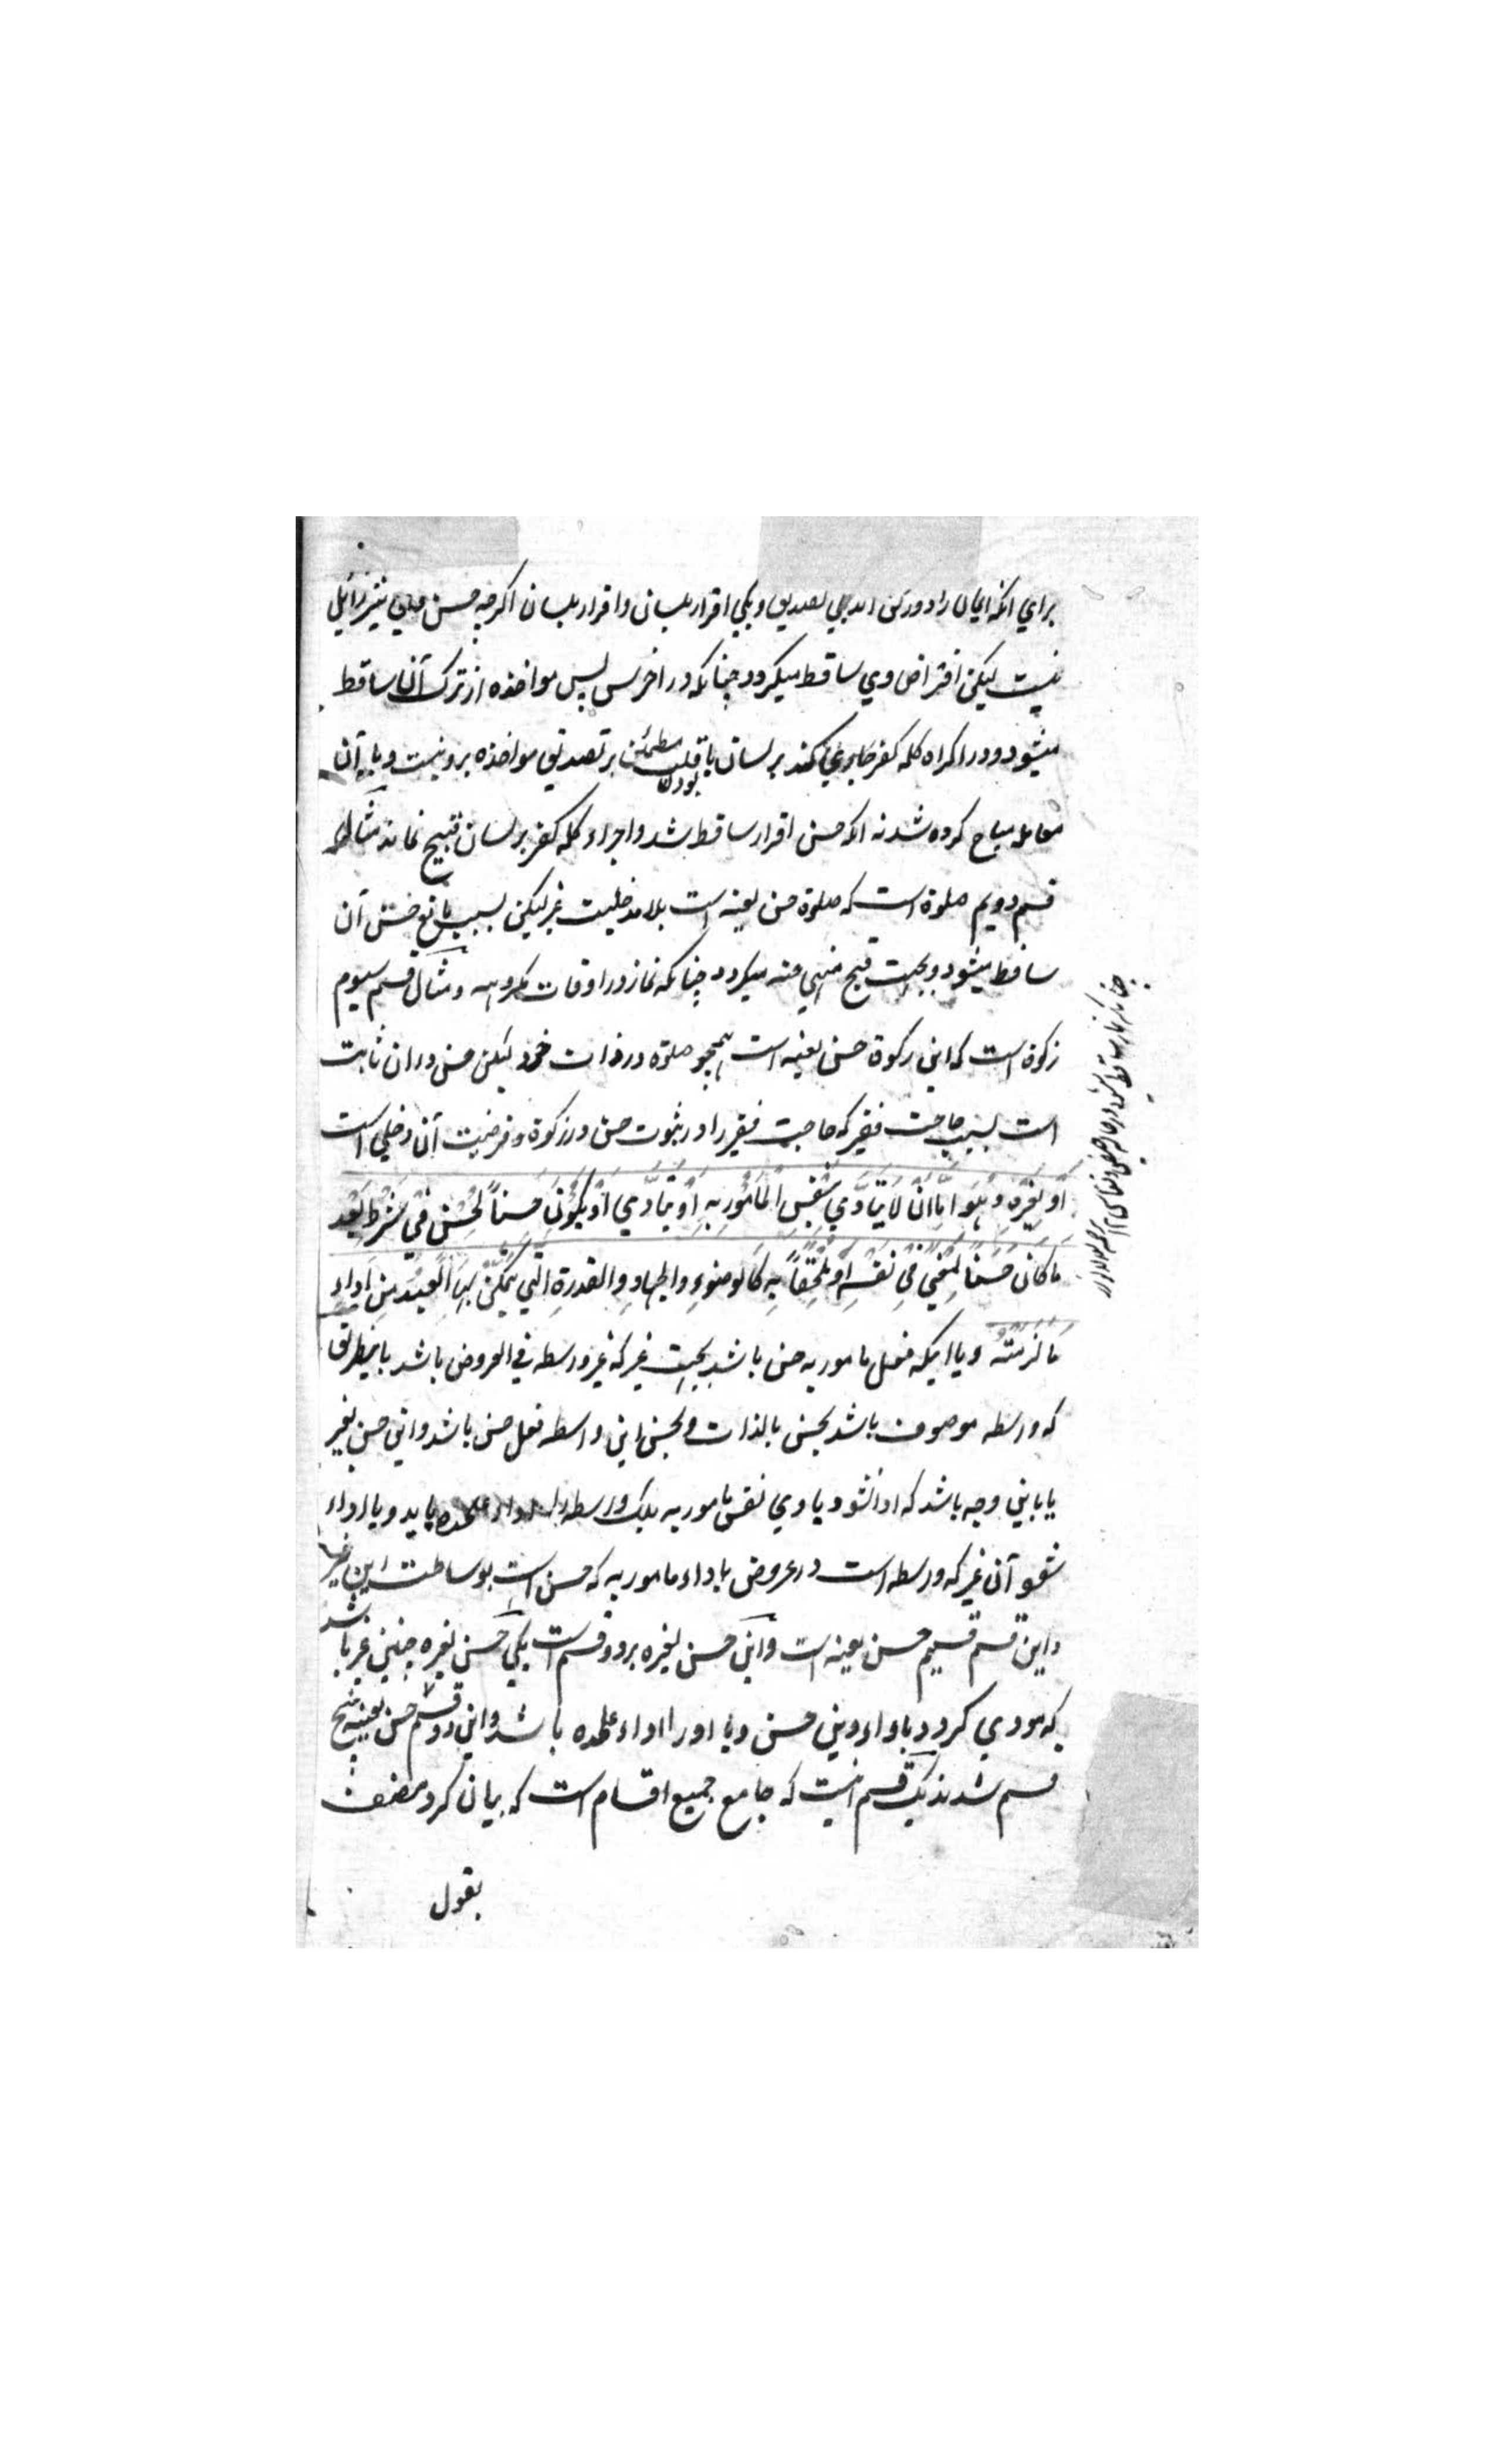 براي انکه ایمان را دو رکن اند یکي تصدیق و یکي اقرار بلسان و اقرار بلسان اکرچه حسن وي نیز زایل
نیست لیکن افتراض وي ساقط میکردد چنانکه در اخرس پس مواخذه از ترک آن ساقط
میشود و در اکراه کلمه کفر جاري کند بر لسان با قلب مطمئن بودن بر تصدیق مواخذه برو نیست و با آن
معامله مباح کرده شد نه انکه حسن اقرار ساقط شد و اجراء کلمه کفر بر لسان قبیح نماند مثال
قسم دویم صلوة است که صلوة حسن لعینه است بلا مدخلیت غیر لیکن بسبب مانع حسن آن
ساقط میشود و بجهت قبح منهي عنه میکردد چنانکه نماز در اوقات مکروهه و مثال قسم سیوم
زکوة است که این زکوة حسن لعینه است همچو صلوة در ذات خود لیکن حسن دران ثابت
است بسبب حاجت فقیر که حاجت فقیر را در ثبوت حسن در زکوة و فرضیت آن دخلي است
اَوْ لِغَيْرِهِ وَ هُوَ اِمَّا اَنْ لَا يَتَأَدَّي بِنَفْسِ الْمَأْمُورِ بِهِ اَوْ يَتَأَدَّي اَوْ يَكُونَ حَسَنًا لِحُسْنٍ فِي شَرْطِهِ بَعْدَ
مَا كَانَ حَسَنًا لِمَعْنًي فِي نَفْسِهِ اَوْ مُلْحَقًا بِهِ كَالْوُضُوءِ وَالْجِهَادِ وَالْقُدْرَةِ الَّتِي يَتَمَكَّنُ بِهَا الْعَبْدُ مِنْ اَدَاءِ
مَا لَزِمَتْهُ و یا اینکه فعل مامور به حسن باشد بجهت غیر که غیر واسطه في العروض باشد باینطریق
که واسطه موصوف باشد بحسن بالذات و بحسن این واسطه فعل حسن باشد و این حسن لغیر
یا باین وجه باشد که ادا نشود با وي نفس مامور به بلکه واسطه را اداء علحده باید و یا اداء
شود آن غیر که واسطه است در عروض باداء مامور به که حسن است بوساطت این غیر
و این قسم قسیم حسن لعینه است و این حسن لغیره بر دو قسم است یکي حسن لغیره چنین غیر باشد
که مودي کردد باداء وین حسن و یا او را اداء علحده باشد و این دو قسم حسن لعینه پنج
قسم شدند یک قسم انیست که جامع جمیع اقسام است که بیان کرد مصنف
بقول
چنانکه نماز ساقط میشود در حالت حیض و نفاس